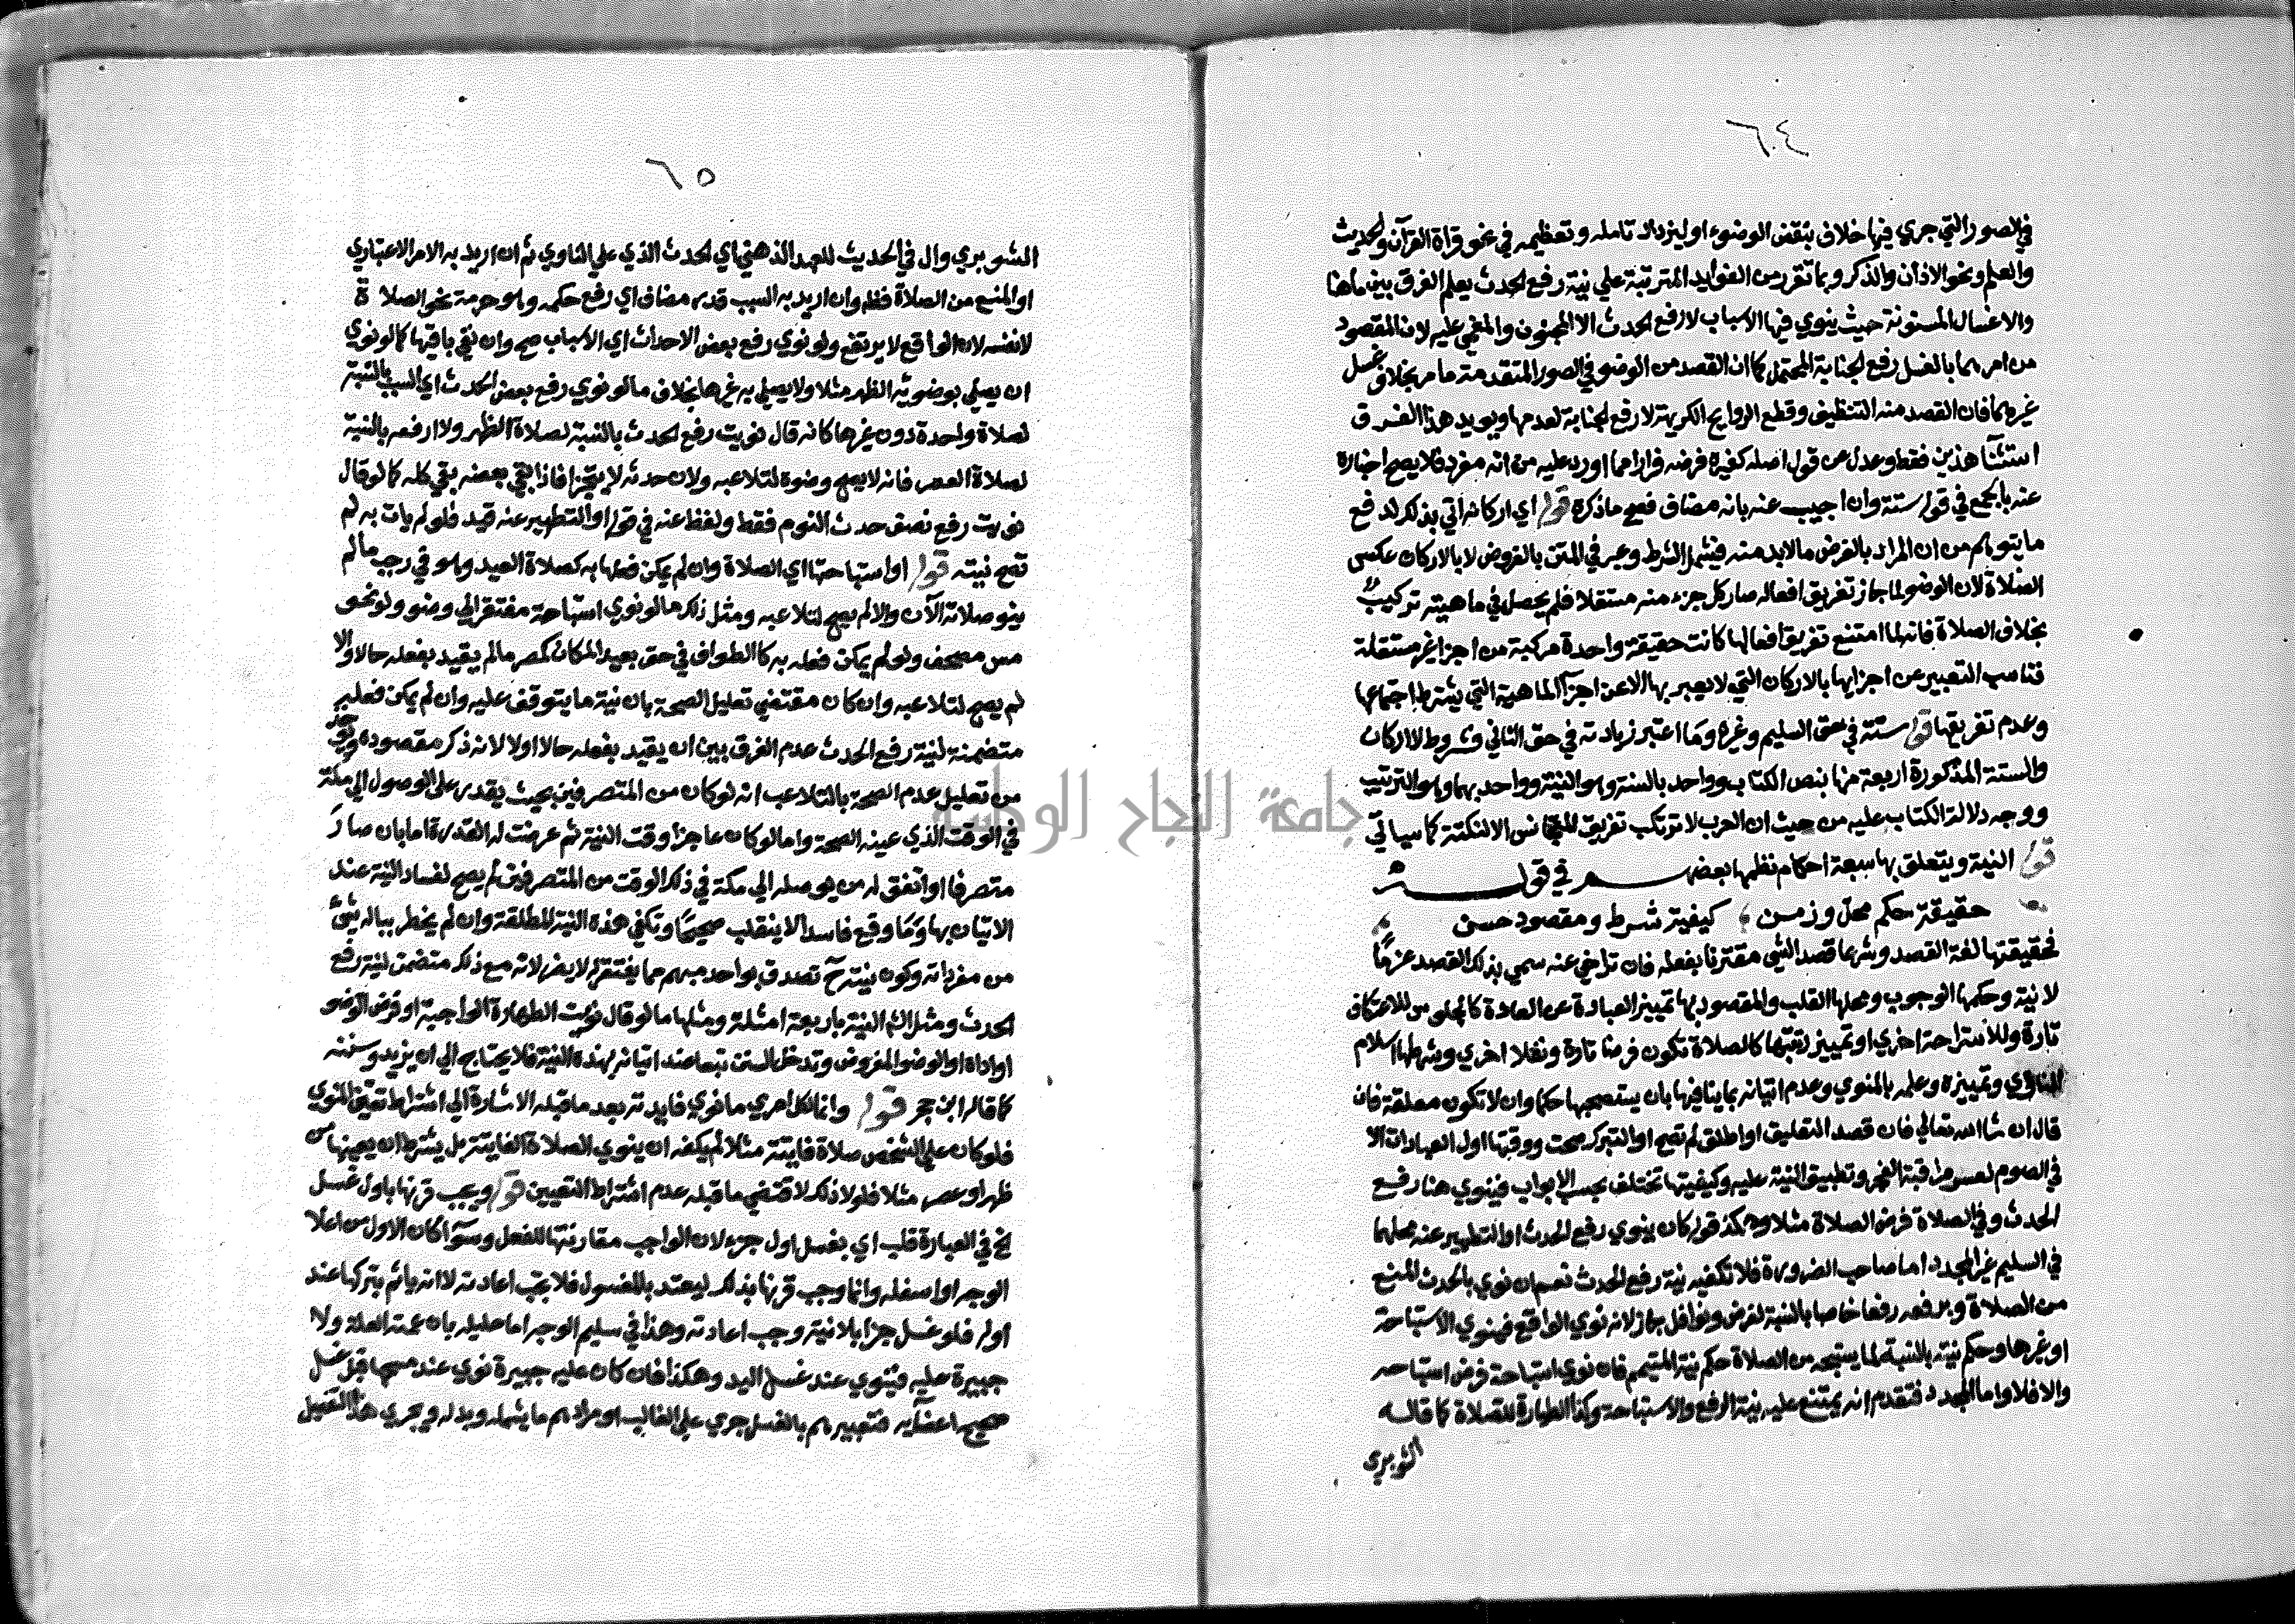 ٦٤
في الصور التي جري فيها خلاف بنقض الوضوء او ليزداد تامله وتعظيمه في نحو قراة القرآن والحديث
والعلم ونحو الاذان والذكر وبما تقرر من الفوايد المترتبة علي نية رفع الحدث يعلم الفرق بين ما هنا
والاغسال المسنونة حيث ينوي فيها الاسباب لا رفع الحدث الا المجنون والمغمي عليه لان المقصود
من امرهما بالغسل رفع الجنابة المحتمل كما ان القصد من الوضو في الصور المتقدمة ما مر بخلاف غسل
غيرهما فان القصد منه التنظيف وقطع الروايح الكريهة لا رفع الجنابة لعدمها ويويد هذا الفرق
استثنا هذين فقط وعدل عن قول اصله كغيره فرضه فرارا مما اورد عليه من انه مفرد فلا يصح اخباره
عنه بالجمع في قوله ستة وان اجيب عنه بانه مضاف فعم ما ذكره قوله اي اركانه اتي بذلك لدفع
ما يتوهم من ان المراد بالفرض ما لابد منه فيشمل الشرط وعبر في المتن بالفروض لا بالاركان عكس
الصلاة لان الوضو لما جاز تفريق افعاله صار كل جزء منه مستقلا فلم يحصل في ماهيته تركيب
بخلاف الصلاة فانه لما امتنع تفريق افعالها كانت حقيقة واحدة مركبة من اجزا غير مستقلة
فناسب التعبير عن اجزايها بالاركان التي لا يعبر بها الا عن اجزآ الماهية التي يشترط اجتماعها
وعدم تفريقها قوله ستة في حق السليم وغيره وما اعتبر زيادته في حق الثاني وشروط لا اركان
والستة المذكورة اربعة منها بنص الكتاب وواحد بالسنة وهو النية وواحد بهما وهو الترتيب
ووجه دلالة الكتاب عليه من حيث ان العرب لا ترتكب تفريق المتجانس الا لنكتة كما سيأتي
قوله النية ويتعلق بها سبعة احكام نظمها بعضهم في قوله
حقيقة حكم محل وزمن كيفية شرط ومقصود حسن
فحقيقتها لغة القصد وشرعا قصد الشي مقترنا بفعله فان تراخي عنه سمي بذلك القصد عزمًا
لا نية وحكمها الوجوب ومحلها القلب والمقصود بها تمييز العبادة عن العادة كالجلوس للاعتكاف
تارة وللاستراحة اخري او تمييز رتبتها كالصلاة تكون فرضا تارة ونفلا اخري وشرطها اسلام
الناوي وتمييزه وعلمه بالمنوي وعدم اتيانه بما ينافيها بان يستصحبها حكما وان لا تكون معلقة فان
قال ان شا الله تعالي فان قصد التعليق او اطلق لم تصح او التبرك صحت ووقتها اول العبادات الا
في الصوم لعسر مراقبة الفجر وتطبيق النية عليه وكيفيتها تختلف بحسب الابواب فينوي هنا رفع
الحدث وفي الصلاة فرض الصلاة مثلا وهكذا قوله كان ينوي رفع الحدث او التطهير عنه محلهما
في السليم غير المجدد اما صاحب الضرورة فلا تكفيه نية رفع الحدث نعم ان نوي بالحدث المنع
من الصلاة وبرفعه رفعا خاصا بالنسبة لفرض ونوافل جاز لانه نوي الواقع فهنوي الاستباحة
او غيرها وحكم نيته بالنسبة لما يستبيحه من الصلاة حكم نية المتيمم فان نوي استباحة فرض استباحه
والا فلا واما المجدد فتقدم انه يمتنع عليه نية الرفع والاستباحة وكذا الطهارة للصلاة كما قاله
الشوبري
٦٥
الشوبري وال في الحديث للعهد الذهني اي الحدث الذي علي الناوي ثم ان اريد به الامر الاعتباري
او المنع من الصلاة فظاهر وان اريد به السبب قدر مضاف اي رفع حكمه وهو حرمة نحو الصلاة
لا نفسه لان الواقع لا يرتفع ولو نوي رفع بعض الاحداث اي الاسباب صح وان نفي باقيها كما لو نوي
ان يصلي بوضوئه الظهر مثلا ولا يصلي به غيرها بخلاف ما لو نوي رفع بعض الحدث اي السبب بالنسبة
لصلاة واحدة دون غيرها كانه قال نويت رفع الحدث بالنسبة لصلاة الظهر ولا ارفعه بالنسبة
لصلاة العصر فانه لا يصح وضوءه لتلاعبه ولان حدثه لا يتجزا فاذا بقي بعضه بقي كله كما لو قال
نويت رفع نصف حدث النوم فقط ولفظ عنه في قوله او التطهير عنه قيد فلو لم يات به لم
تصح نيته قوله او استباحتها اي الصلاة وان لم يمكن فعلها به كصلاة العيد وهو في رجب ما لم
ينو صلاته الآن والا لم يصح لتلاعبه ومثل ذلك ما لو نوي استباحة مفتقر الي وضو ولو نحو
مس مصحف ولو لم يمكن فعله به كالطواف في حق بعيد المكان كمصر ما لم يقيد بفعله حالا والا
لم يصح لتلاعبه وان كان مقتضي تعليل الصحة بان نية ما يتوقف عليه وان لم يمكن فعله
متضمنة لنية رفع الحدث عدم الفرق بين ان يقيد بفعله حالا او لا لانه ذكر مقصوده ويوخذ
من تعليل عدم الصحة بالتلاعب انه لو كان من المتصرفين بحيث يقدر علي الوصول الي مكة
في الوقت الذي عينه الصحة واما لو كان عاجزا وقت النية ثم عرضت له القدرة اما بان صار
متصرفا او اتفق له من يوصله الي مكة في ذلك الوقت من المتصرفين لم يصح لفساد النية عند
الاتيان بها وما وقع فاسدا لا ينقلب صحيحًا وتكفي هذه النية المطلقة وان لم يخطر بباله شي
من مفرداته وكون نيته ح تصدق بواحد مبهم مما يفتقر له لا يضر لانه مع ذلك متضمن لنية رفع
الحدث ومثل الشم النية باربعة امثلة ومثلها ما لو قال نويت الطهارة الواجبة او فرض الوضو
او اداه او الوضو المفروض وتدخل السنن تبعا عند اتيانه بهذه النية فلا يحتاج الي ان يزيد وسننه
كما قاله ابن حجر قوله وانما لكل امري ما نوي فايدته بعد ما قبله الاشارة الي اشتراط تعيين المنوي
فلو كان علي الشخص صلاة فايتة مثلا لم يكفه ان ينوي الصلاة الفايتة بل يشترط ان يعينها من
ظهر او عصر مثلا فلولا ذلك لاقتضي ما قبله عدم اشتراط التعيين قوله ويجب قرنها باول غسل
الخ في العبارة قلب اي بغسل اول جزء لان الواجب مقارنتها للفعل وسوآ كان الاول من اعلا
الوجه او اسفله وانما وجب قرنها بذلك ليعتد بالمغسول فلا يجب اعادته لا انه ياثم بتركها عند
اوله فلو غسل جزا بلا نية وجب اعادته وهذا في سليم الوجه اما عليله بان عمته العلة ولا
جبيرة عليه فينوي عند غسل اليد وهكذا فان كان عليه جبيرة نوي عند مسحها قبل غسل
صحيح اعضآيه فتعبيرهم بالغسل جري علي الغالب او مرادهم ما يشمله وبدله ويجري هذا التعبيل
جامعة النجاح الوطنية